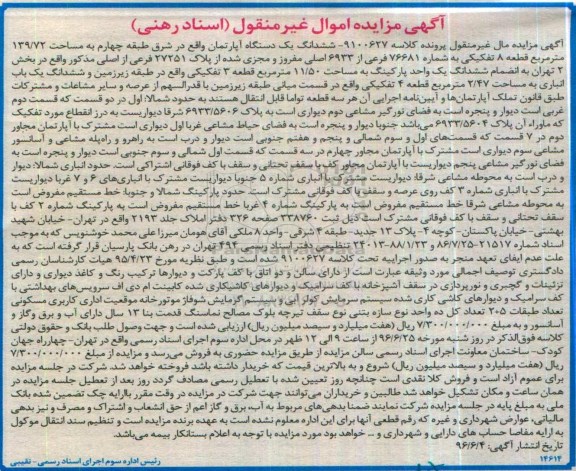 آگهی مزایده اموال غیر منقول (اسناد رهنی)
آگهی مزایده مال غیرمنقول پرونده کلاسه ۹۱۰۰۶۲۷- ششدانگ یک دستگاه آپارتمان واقع در شرق طبقه چهارم به مساحت ۱۳۹/۷۲
مترمربع قطعه ۸ تفکیکی به شماره ۷۶۶۸۱ فرعی از ۶۹۳۳ اصلی مفروز و مجزی شده از پلاک ۲۷۲۵۱ فرعی از اصلی مذکور واقع در بخش
۳ تهران به انضمام ششدانگ یک واحد پارکینگ به مساحت ۱۱/۵۰ مترمربع قطعه ۳ تفکیکی واقع در طبقه زیرزمین و ششدانگ یک باب
انباری به مساحت ۲/۴۷ مترمربع قطعه ۴ تفکیکی واقع در قسمت میانی طبقه زیرزمین با قدرالسهم از عرصه و سایر مشاعات و مشترکات
طبق قانون تملک آپارتمان‌ها و آیین‌نامه اجرایی آن هر سه قطعه توأما قابل انتقال هستند به حدود شمالا: اول در دو قسمت که قسمت دوم
غربی است دیوار و پنجره است به فضای نورگیر مشاعی دوم دیواری است به پلاک ۶۹۳۳/۵۶۰۶ شرقا دیواریست به درز انقطاع مورد تفکیک
که ماوراء آن پلاک ۶۹۳۳/۵۶۰۴ می‌باشد جنوبا دیوار و پنجره است به فضای حیاط مشاعی غربا اول دیواری است مشترک با آپارتمان مجاور
دوم در ۷ قسمت که قسمت‌های اول و سوم شمالی و پنجم و هفتم جنوبی است دیوار و درب است به راهرو و راه‌پله مشاعی و آسانسور
مشاعی سوم دیواری است مشترک با آپارتمان مجاور چهارم در سه قسمت که قسمت اول شمالی و سوم جنوبی است دیوار و پنجره است به
فضای نورگیر مشاعی پنجم دیواریست با آپارتمان مجاور کف با سقف تحتانی و سقف با کف فوقانی اشتراکی است. حدود انباری شمالا: دیوار
و درب است به محوطه مشاعی شرقا: دیواریست مشترک با انباری شماره ۵ جنوبا دیواریست مشترک با انباری‌های ۶ و ۷ غربا دیواریست
مشترک با انباری شماره ۳ کف روی عرصه و سقف با کف فوقانی مشترک است حدود پارکینگ شمالا و جنوبا: خط مستقیم مفروض است
به محوطه مشاعی شرقا خط مستقیم مفروض است به پارکینگ شماره ۴ غربا خط مستقیم مفروض است به پارکینگ شماره ۲ کف با
سقف تحتانی و سقف با کف فوقانی مشترک است ذیل ثبت ۳۳۸۷۶۰ صفحه ۳۲۶ دفتر املاک جلد ۲۱۹۳ واقع در تهران- خیابان شهید
بهشتی- خیابان پاکستان- کوچه ۴- پلاک ۱۳ جدید- طبقه ۴ شرقی- واحد ۸ ملکی آقای هومان میرزاعلی محمد خوشنویس که به موجب
اسناد شماره ۲۱۵۱۷-۸۶/۷/۲۵ و ۲۴۰۱۳-۸۸/۱/۲۳ تنظیمی دفتر اسناد رسمی ۴۹۴ تهران در رهن بانک پارسیان قرار گرفته است که به
علت عدم ایفای تعهد منجر به صدور اجراییه تحت کلاسه ۹۱۰۰۶۲۷ شده است و طبق نظریه مورخ ۹۵/۴/۲۳ هیات کارشناسان رسمی
دادگستری توصیف اجمالی مورد وثیقه عبارت است از دارای سالن و دو اتاق با کف پارکت و دیوارها ترکیب رنگ و کاغذ دیواری و دارای
تزئینات و گچبری و نورپردازی در سقف آشپزخانه با کف سرامیک و دیوارهای کاشیکاری شده کابینت ام دی اف سرویس‌های بهداشتی با
کف سرامیک و دیوارهای کاشی کاری شده سیستم سرمایش کولر آبی و سیستم گرمایش شوفاژ موتورخانه موقعیت اداری کاربری مسکونی
تعداد طبقات ۲۰۵ تعداد کل ده واحد نوع سازه بتنی نوع سقف تیرچه بلوک مصالح نماسنگ قدمت بنا ۱۳ سال دارای آب و برق وگاز و
آسانسور و به مبلغ ۷/۳۰۰/۰۰۰/۰۰۰ ریال (هفت میلیارد و سیصد میلیون ریال) ارزیابی شده است و جهت وصول طلب بانک و حقوق دولتی
کلاسه فوق‌الذکر در روز شنبه مورخه ۹۶/۶/۲۵ از ساعت ۹ الی ۱۲ ظهر در محل اداره سوم اجرای اسناد رسمی واقع در تهران- چهارراه جهان
کودک- ساختمان معاونت اجرای اسناد رسمی سالن مزایده از طریق مزایده حضوری به فروش می‌رسد و مزایده از مبلغ ۷/۳۰۰/۰۰۰/۰۰۰
ریال (هفت میلیارد و سیصد میلیون ریال) شروع و به بالاترین قیمت که خریدار داشته باشد فروخته خواهد شد. شرکت در جلسه مزایده
برای عموم آزاد است و فروش کلا نقدی است چنانچه روز تعیین شده با تعطیل رسمی مصادف گردد روز بعد از تعطیل جلسه مزایده در
همان ساعت و مکان تشکیل خواهد شد طالبین و خریداران می‌توانند جهت شرکت در مزایده در وقت مقرر باارایه چک تضمین شده بانک
ملی به مبلغ پایه در جلسه مزایده شرکت نمایند ضمنا بدهی‌های مربوط به آب، برق و گاز اعم از حق انشعاب و اشتراک و مصرف و نیز بدهی
مالیاتی، عوارض شهرداری و غیره که رقم قطعی آنها برای این اداره معلوم نشده است به عهده برنده مزایده است و تنظیم سند انتقال موکول
به ارایه مفاصا حساب های دارایی و شهرداری و ... خواهد بود مورد مزایده با توجه به اعلام بستانکار بیمه می‌باشد.
تاریخ انتشار آگهی: ۹۶/۶/۴
رئیس اداره سوم اجرای اسناد رسمی- نقیبی
۱۴۶۱۴